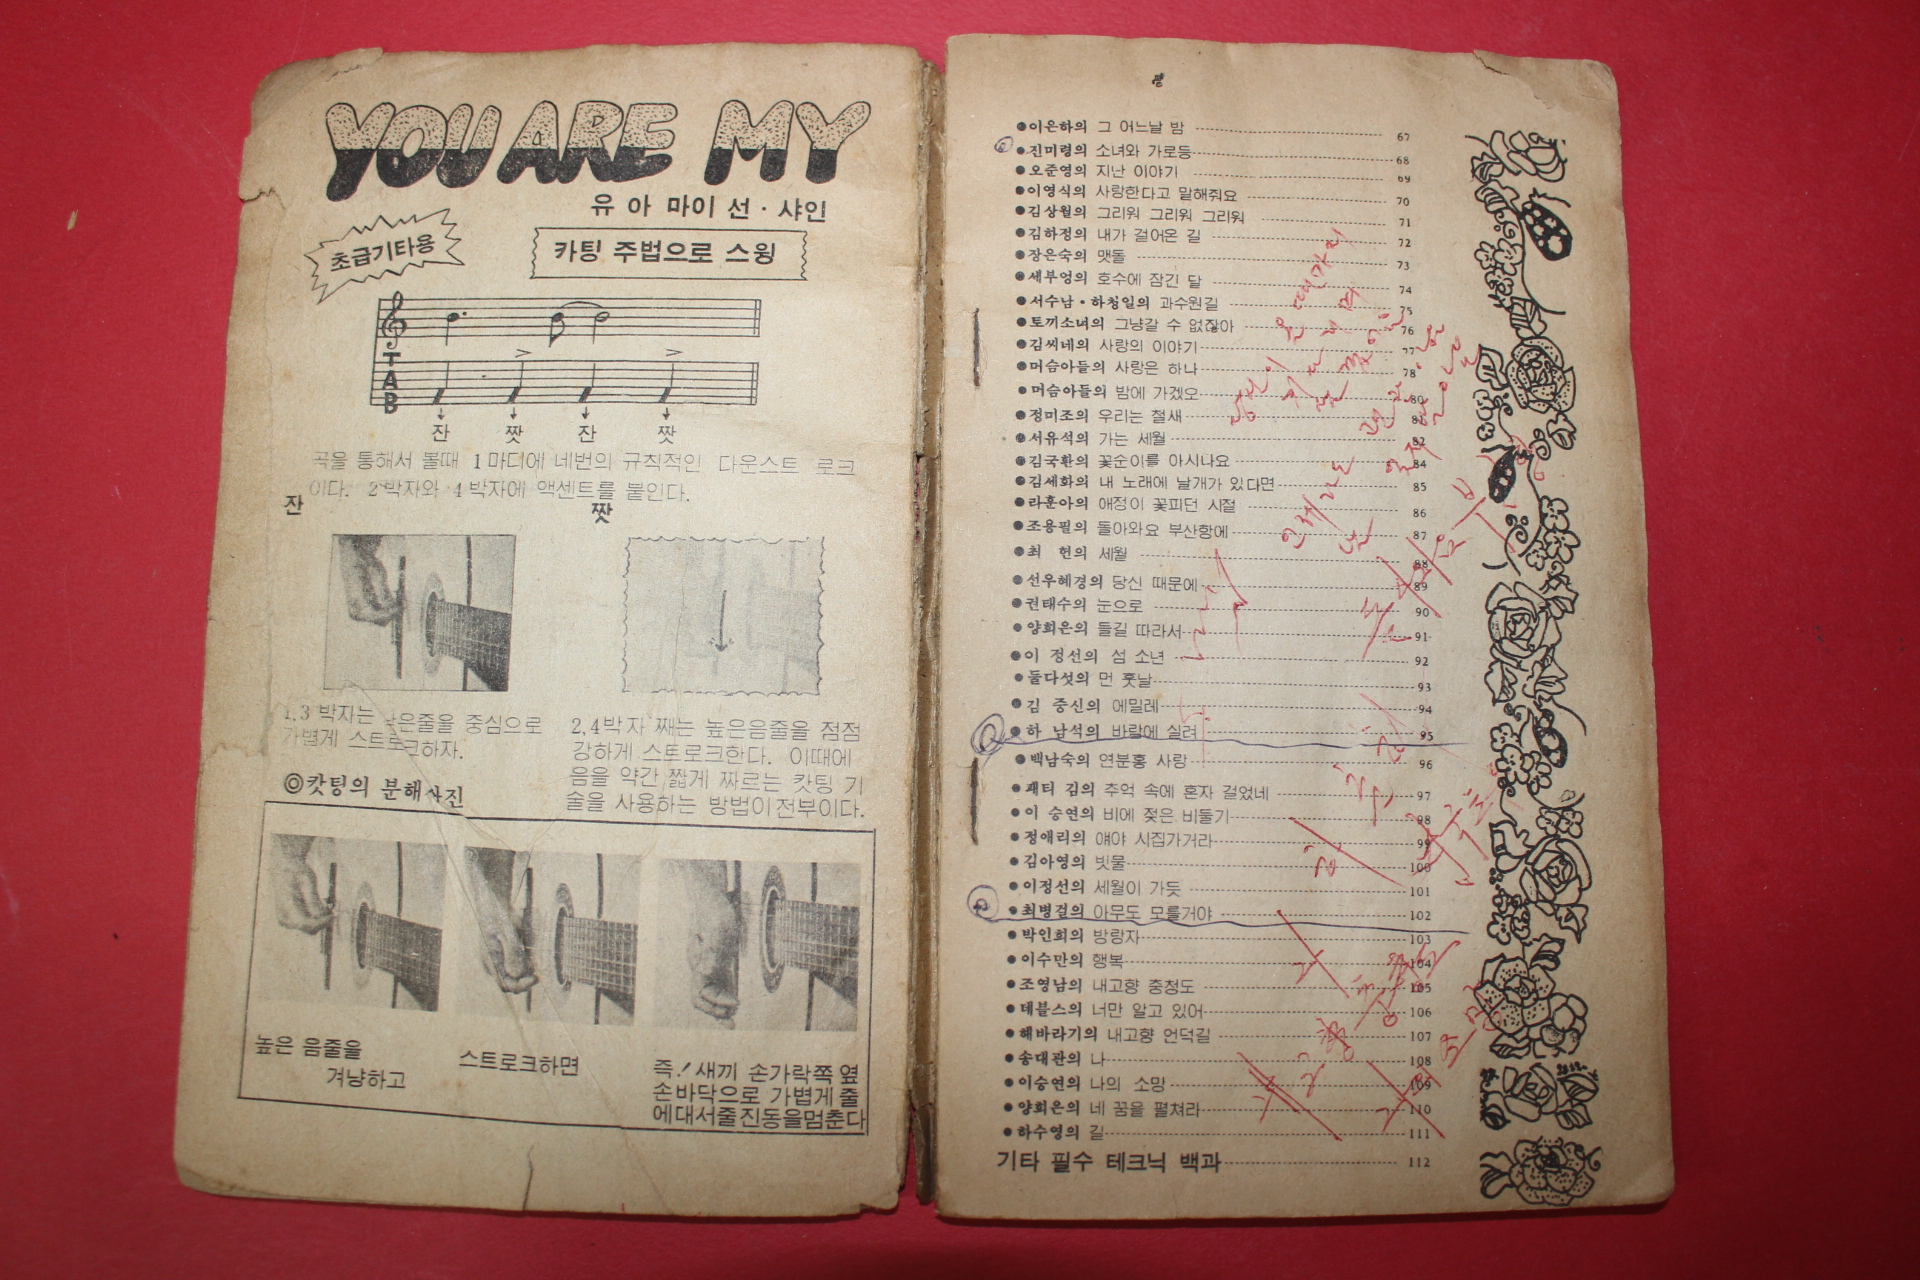 YOU ARE MY
유 아 마이 선 · 샤인
초급기타용
카팅 주법으로 스윙
TAB
잔 짯 잔 짯
곡을 통해서 볼때 1마디에 네번의 규칙적인 다운스트 로크
이다. 2박자와 4박자에 액센트를 붙인다.
잔 짯
1,3 박자는 낮은줄을 중심으로
가볍게 스트로크하자.
2,4박자 째는 높은음줄을 점점
강하게 스트로크한다. 이때에
음을 약간 짧게 짜르는 캇팅 기
술을 사용하는 방법이전부이다.
◎캇팅의 분해사진
높은 음줄을
겨냥하고
스트로크하면
즉! 새끼 손가락쪽 옆
손바닥으로 가볍게 줄
에대서줄진동을멈춘다
●이은하의 그 어느날 밤 67
●진미령의 소녀와 가로등 68
●오준영의 지난 이야기 69
●이영식의 사랑한다고 말해줘요 70
●김상월의 그리워 그리워 그리워 71
●김하정의 내가 걸어온 길 72
●장은숙의 맷돌 73
●세부엉의 호수에 잠긴 달 74
●서수남·하청일의 과수원길 75
●토끼소녀의 그냥갈 수 없잖아 76
●김씨네의 사랑의 이야기 77
●머슴아들의 사랑은 하나 78
●머슴아들의 밤에 가겠오 80
●정미조의 우리는 철새 81
●서유석의 가는 세월 82
●김국환의 꽃순이를 아시나요 84
●김세화의 내 노래에 날개가 있다면 85
●라훈아의 애정이 꽃피던 시절 86
●조용필의 돌아와요 부산항에 87
●최 헌의 세월 88
●선우혜경의 당신 때문에 89
●권태수의 눈으로 90
●양희은의 들길 따라서 91
●이 정선의 섬 소년 92
●둘다섯의 먼 훗날 93
●김 중신의 에밀레 94
●하 남석의 바람에 실려 95
●백남숙의 연분홍 사랑 96
●패티 김의 추억 속에 혼자 걸었네 97
●이 승연의 비에 젖은 비둘기 98
●정애리의 얘야 시집가거라 99
●김아영의 빗물 100
●이정선의 세월이 가듯 101
●최병걸의 아무도 모를거야 102
●박인희의 방랑자 103
●이수만의 행복 104
●조영남의 내고향 충청도 105
●데블스의 너만 알고 있어 106
●해바라기의 내고향 언덕길 107
●송대관의 나 108
●이승연의 나의 소망 109
●양희은의 네 꿈을 펼쳐라 110
●하수영의 길 111
기타 필수 테크닉 백과 112